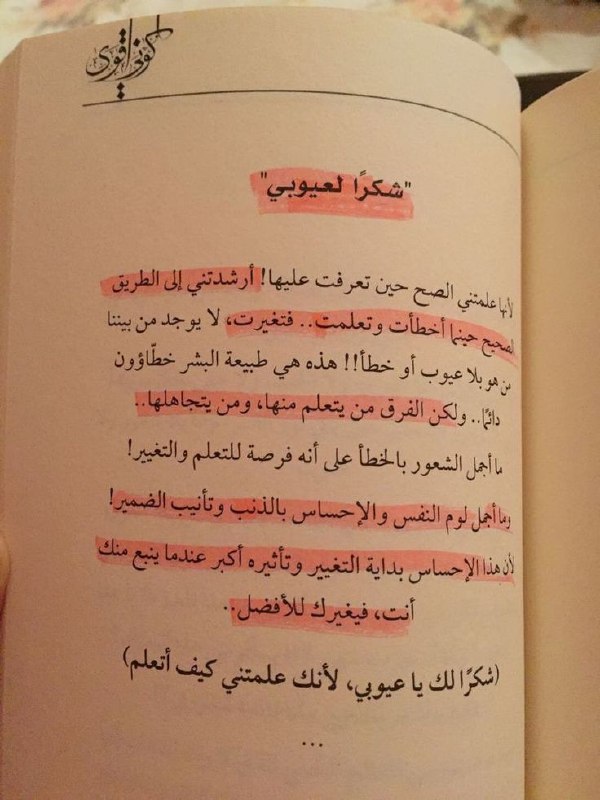 كوني أقوى
"شكرًا لعيوبي"
لأنها علمتني الصح حين تعرفت عليها! أرشدتني إلى الطريق
الصحيح حينما أخطأت وتعلمت.. فتغيرت، لا يوجد من بيننا
من هو بلا عيوب أو خطأ!! هذه هي طبيعة البشر خطّاؤون
دائمًا.. ولكن الفرق من يتعلم منها، ومن يتجاهلها..
ما أجمل الشعور بالخطأ على أنه فرصة للتعلم والتغيير!
وما أجمل لوم النفس والإحساس بالذنب وتأنيب الضمير!
لأن هذا الإحساس بداية التغيير وتأثيره أكبر عندما ينبع منك
أنت، فيغيرك للأفضل..
(شكرًا لك يا عيوبي، لأنك علمتني كيف أتعلم)
...